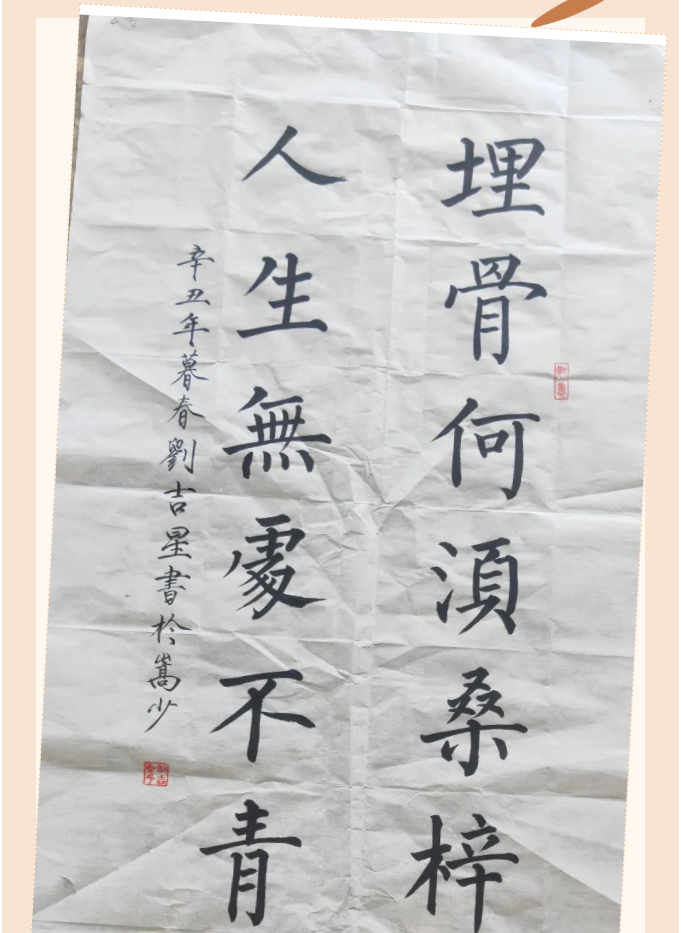 埋骨何湏桑梓
人生無處不青
辛丑年暮春劉吉星書於嵩少